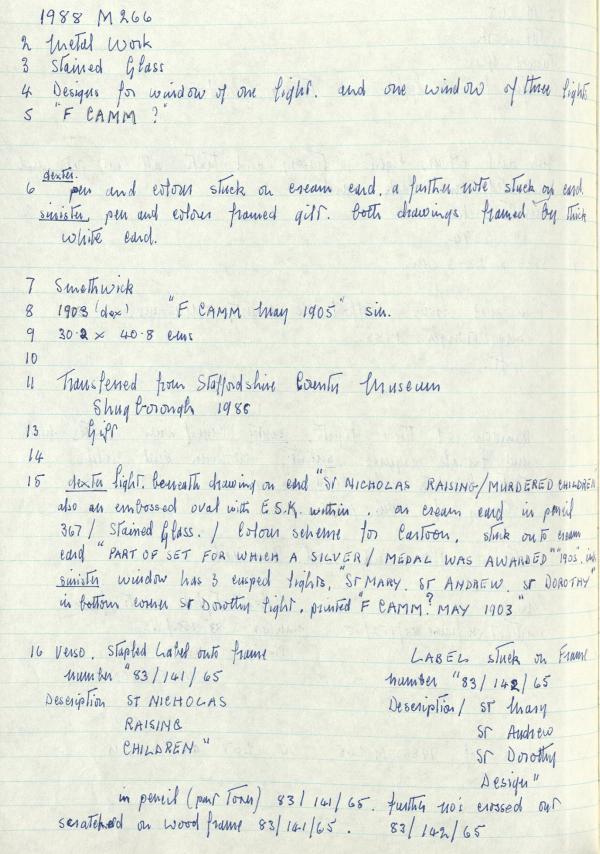 1988 M266
2 Metal Work
3 Stained Glass
4 Designs for window of one light. and one window of three lights
5 "F CAMM ?"
dexter.
6 pen and colour stuck on cream card. a further note stuck on card
sinister pen and colour framed gilt. both drawings framed by thick
white card.
7 Smethwick
8 1903 (dex) "F CAMM May 1905" sin.
9 30.2 x 40.8 cms
10
11 Transferred from Staffordshire County Museum
Shugborough 1986
13 Gift
14
15 dexter light. beneath drawing on card "St NICHOLAS RAISING/MURDERED CHILDREN"
also an embossed oval with E.S.K. within. on cream card in pencil
367/ Stained Glass. / Colour scheme for Cartoon. stuck onto cream
card "PART OF SET FOR WHICH A SILVER/ MEDAL WAS AWARDED" "1905".
sinister window has 3 cusped lights, "St MARY. St ANDREW. St DOROTHY"
in bottom corner St Dorothy light. printed "F CAMM? MAY 1903"
16 Verso. Stapled Label onto frame LABEL stuck on Frame
number "83/141/65 number "83/142/65
Description ST NICHOLAS Description/ St Mary
RAISING St Andrew
CHILDREN" St Dorothy
Design"
in pencil (part Torn) 83/141/65. further no's crossed out
scratched on wood frame 83/141/65. 83/142/65